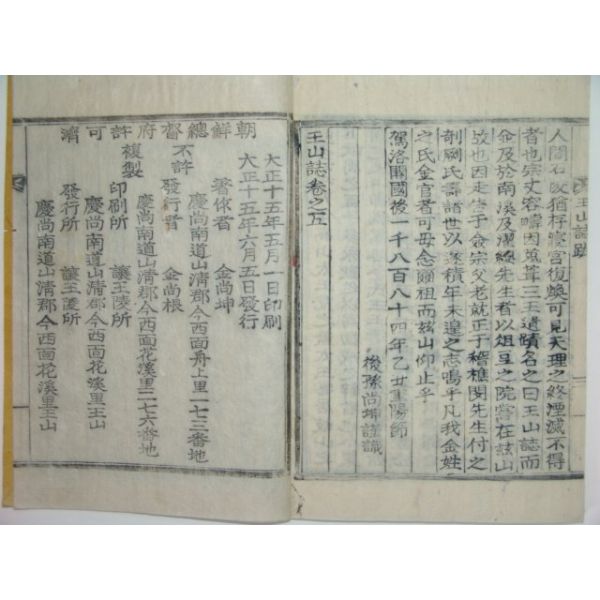 王山誌跋
人間石以猶存寢宮復煥可見天理之終湮滅不得
者也宗丈容疇因蒐葺三王遺蹟名之曰王山誌而
金及於南溪及濯纓先生者以俎豆之院嘗在玆山
故也因走侄子金宗父老就正于稽樵閔先生付之
剞劂氏壽諸世以遂積年未遑之志嗚乎凡我金姓
之氏金官者可毋念爾祖而玆山仰止乎
駕洛開國後一千八百八十四年乙丑重陽節
後孫尚坤謹識
王山誌卷之五
朝鮮總督府許可濟
大正十五年五月一日印刷
大正十五年六月五日發行
著作者 金尚坤
慶尚南道山清郡今西面舟上里一七三番地
不許複製
發行者 金尚根
慶尚南道山清郡今西面花溪里二七六番地
印刷所 讓王陵所
慶尚南道山清郡今西面花溪里王山
發行所 讓王陵所
慶尚南道山清郡今西面花溪里王山